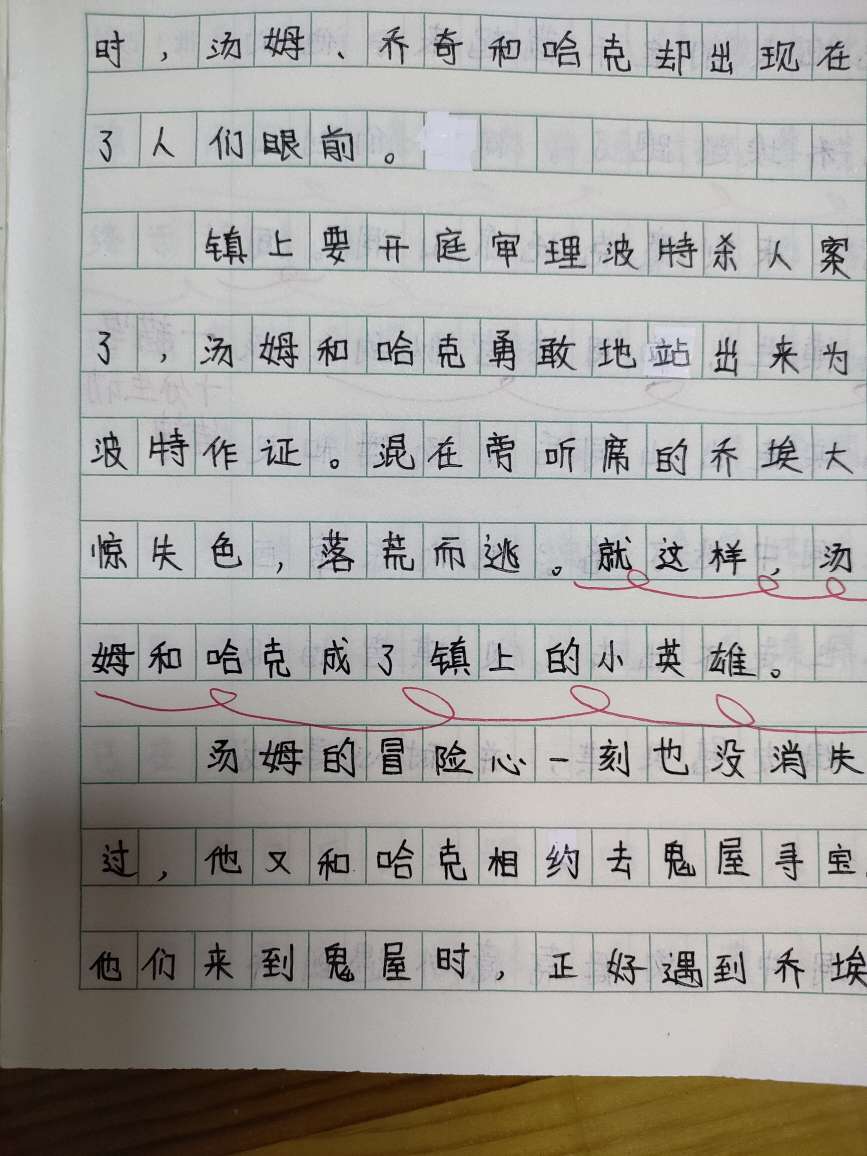 时，汤姆、乔奇和哈克却出现在
了人们眼前。
镇上要开庭审理波特杀人案
了，汤姆和哈克勇敢地站出来为
波特作证。混在旁听席的乔埃大
惊失色，落荒而逃。就这样，汤
姆和哈克成了镇上的小英雄。
汤姆的冒险心一刻也没消失
过，他又和哈克相约去鬼屋寻宝
他们来到鬼屋时，正好遇到乔埃